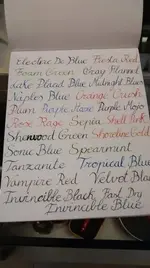 Electric De Blue Fiesta Red
Foam Green Gray Flannel
Lake Placid Blue Midnight Blue
Naples Blue Orange Crush
Plum Purple Haze Purple Mojo
Rose Rage Sepia Shell Pink
Sherwood Green Shoreline Gold
Sonic Blue Spearmint
Tanzanite Tropical Blue
Vampire Red Velvet Black
Invincible Black Fast Dry
Invincible Blue